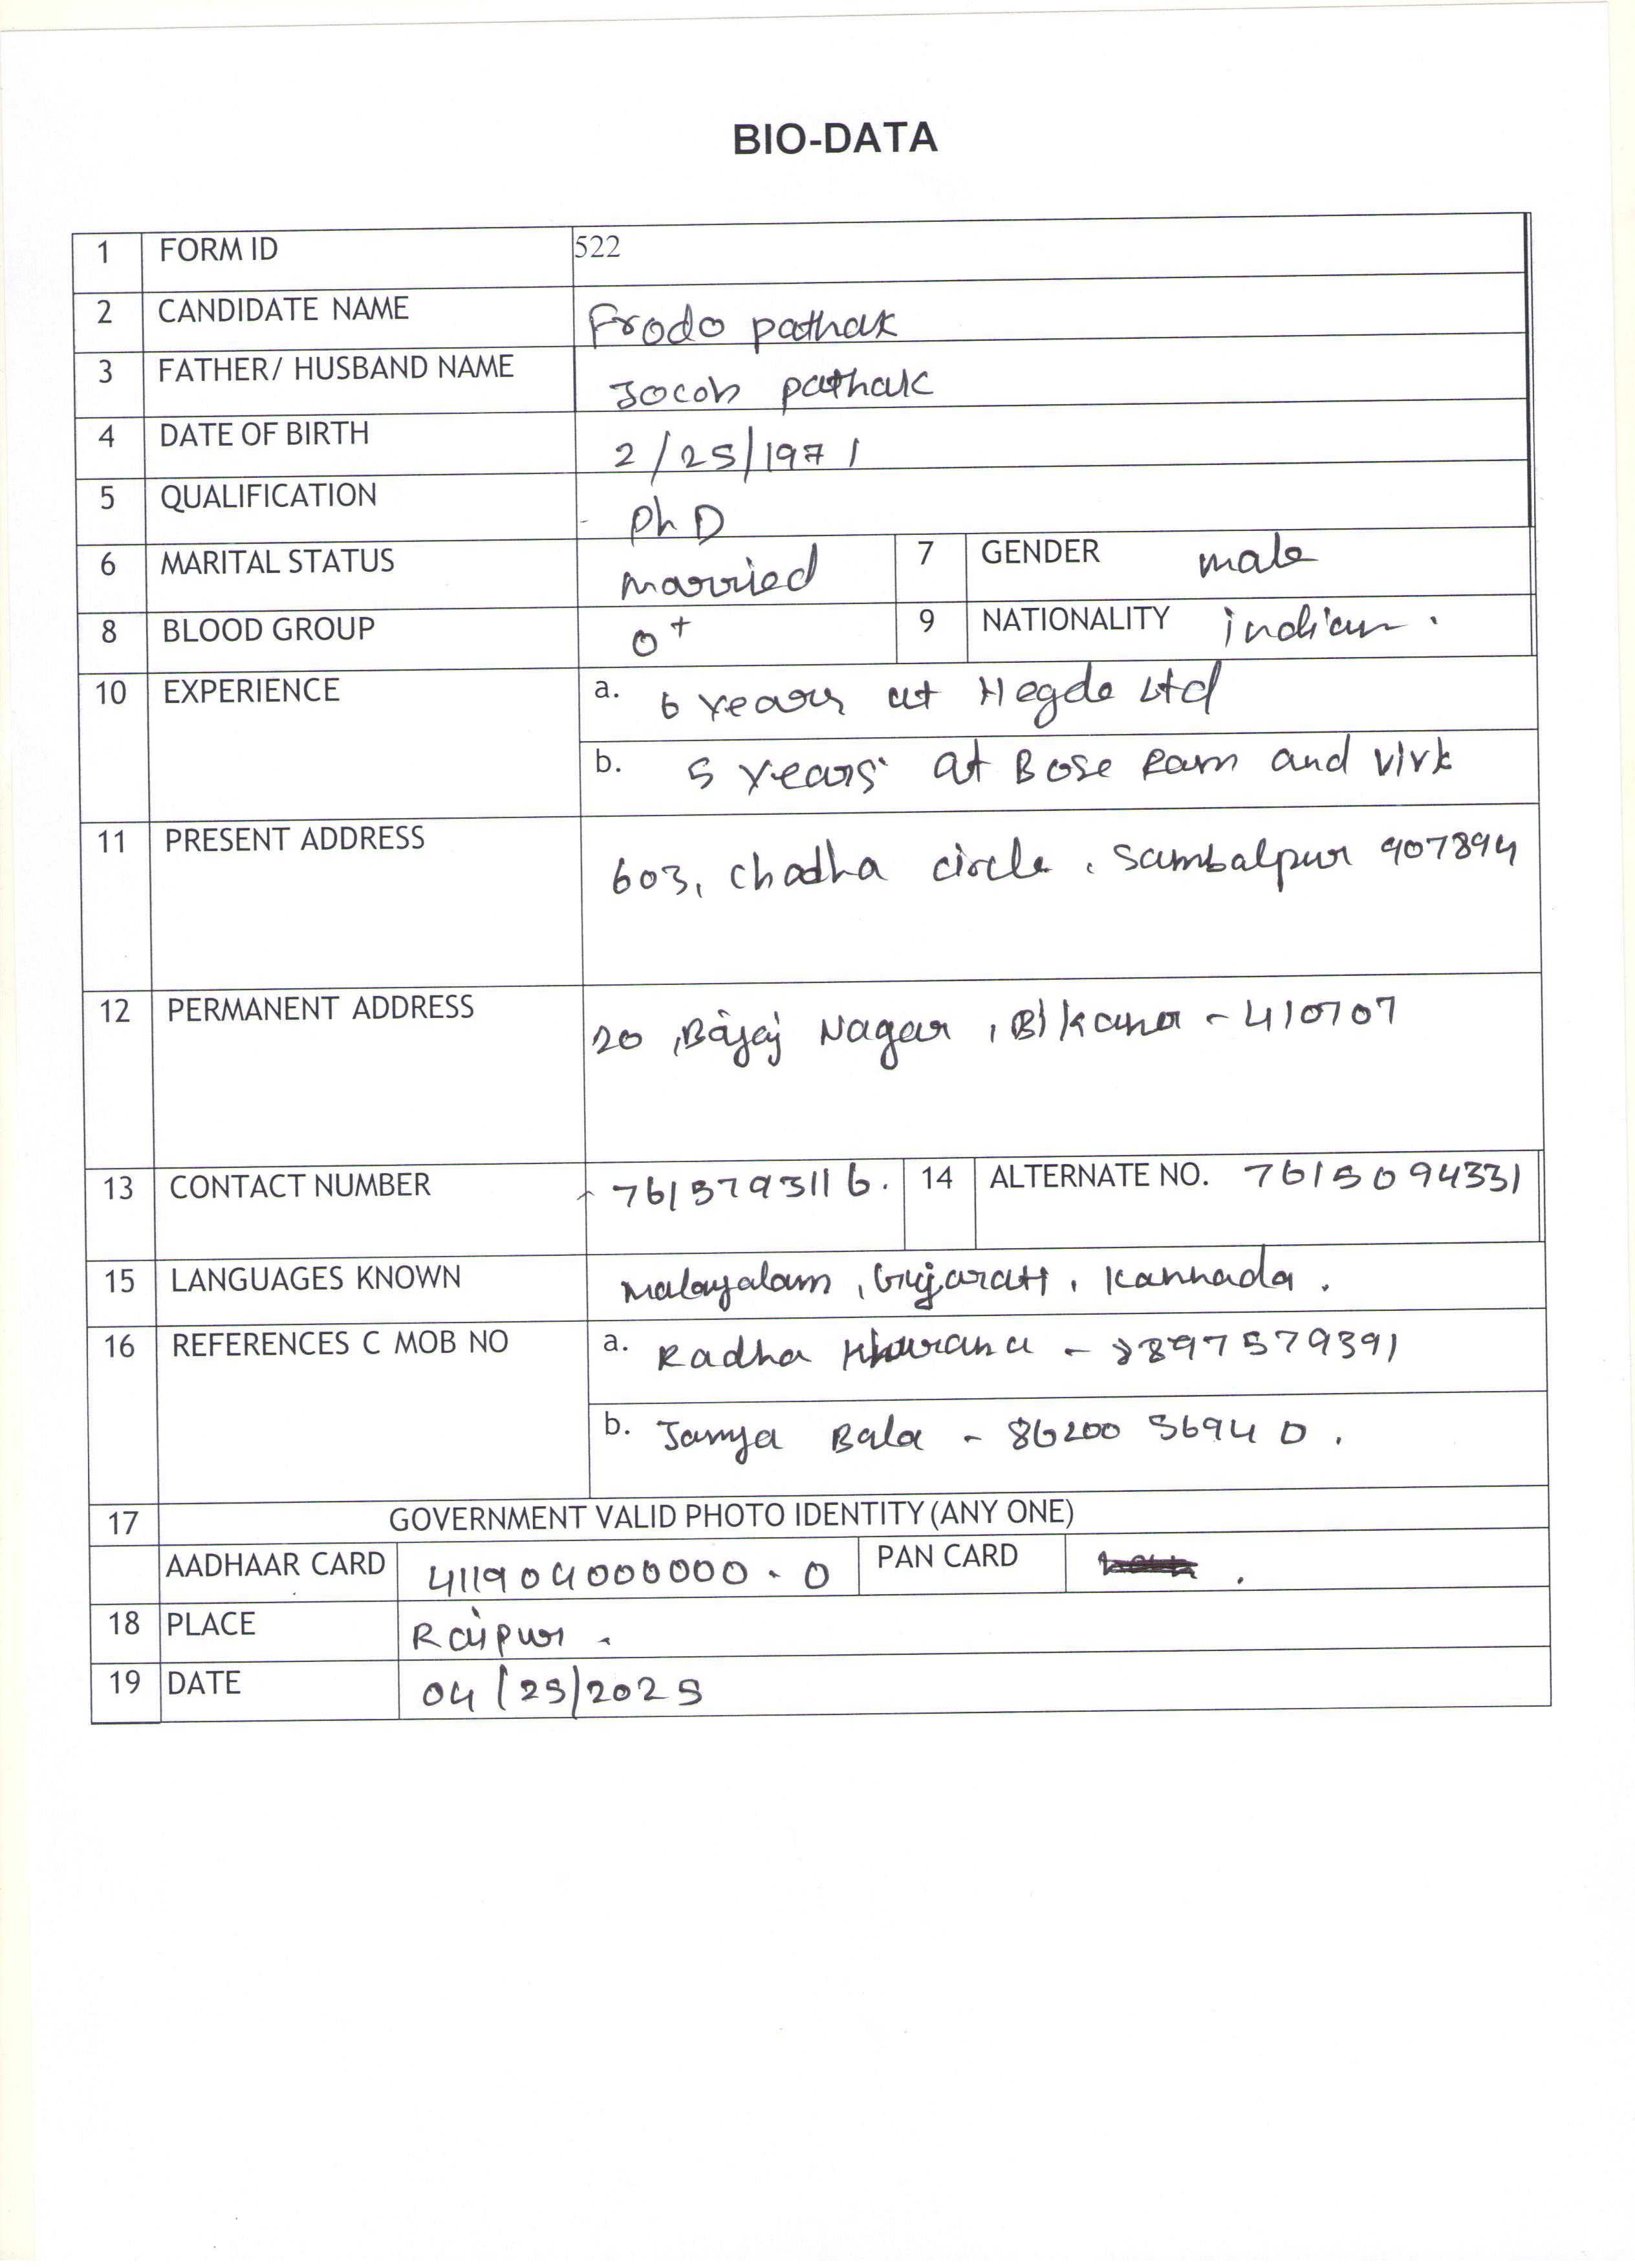 BIO-DATA
1 FORM ID 522
2 CANDIDATE NAME Frodo pathak
3 FATHER/ HUSBAND NAME Jocob pathak
4 DATE OF BIRTH 2/25/1971
5 QUALIFICATION PhD
6 MARITAL STATUS married 7 GENDER male
8 BLOOD GROUP O+ 9 NATIONALITY indian.
10 EXPERIENCE a. 6 Years at Hegde Ltd
b. 5 Years at Bose Ram and Virk
11 PRESENT ADDRESS 603, Chadha circle, Sambalpur 907894
12 PERMANENT ADDRESS 20, Bajaj Nagar, - 410707
13 CONTACT NUMBER 7615793116. 14 ALTERNATE NO. 7615094331
15 LANGUAGES KNOWN Malayalam, Gujarati, Kannada.
16 REFERENCES C MOB NO a. Radha Khurana -
b. Janya Bala - 86200 56940.
17 GOVERNMENT VALID PHOTO IDENTITY (ANY ONE)
AADHAAR CARD 411904000000.0 PAN CARD
18 PLACE Raipur.
19 DATE 04/25/2025